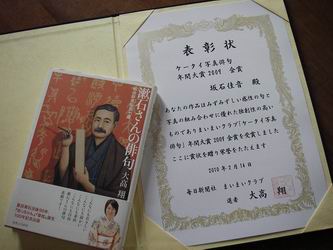 漱石さんの俳句
大高翔
表彰状
ケータイ写真俳句
年間大賞2009 金賞
坂石佳音 殿
あなたの作品はみずみずしい感性の句と
写真の組み合わせに優れた独創性の高い
ものでありまいまいクラブ「ケータイ写真
俳句」年間大賞2009金賞を受賞しました
ここに賞状を贈り栄誉をたたえます
2010年2月14日
毎日新聞社 まいまいクラブ
選者 大高 翔